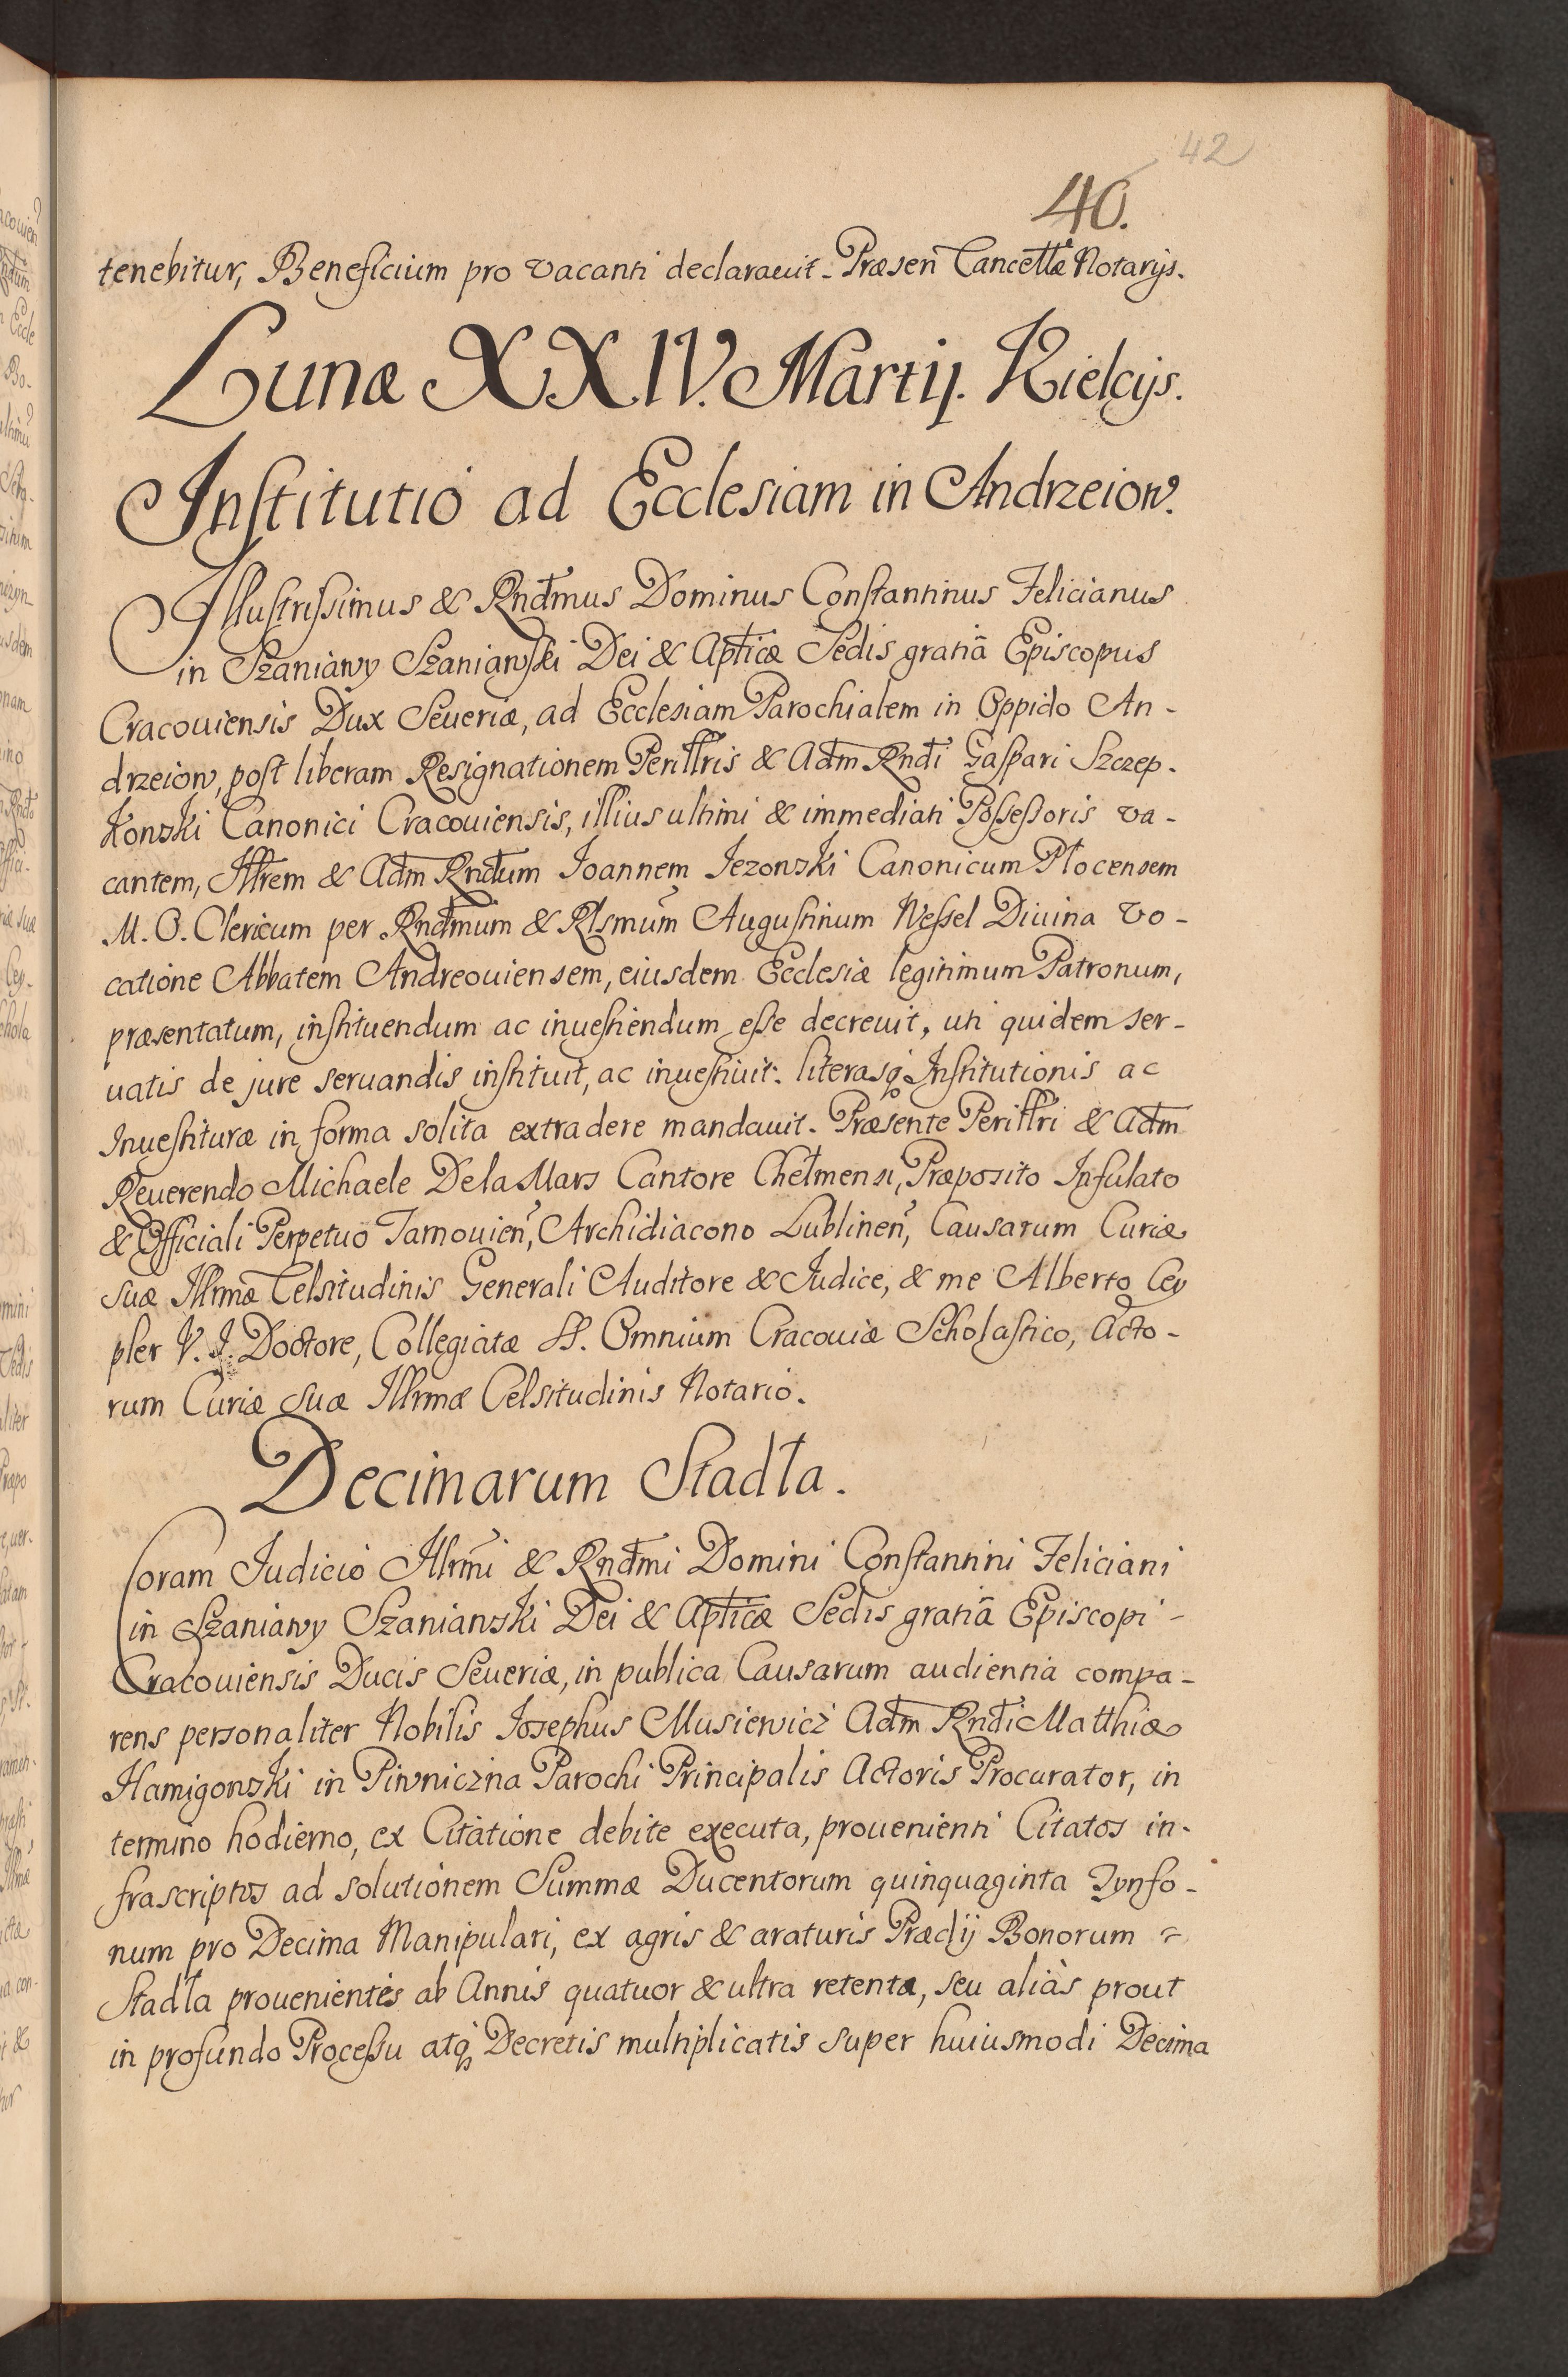 42
40.
tenebitur, Beneficium pro vacanti declarauit. Præsen Cancellæ Notarijs.
Lunæ XXIV. Martij. Kielcijs.
Institutio ad Ecclesiam in Andrzeiow.
Illustrissimus & Rndmus Dominus Constantinus Felicianus
in Szaniawy Szaniawski Dei & Apticæ Sedis gratiâ Episcopus
Cracouiensis Dux Seueriæ, ad Ecclesiam Parochialem in Oppido An-
drzeiow, post liberam Resignationem Perillris & Adm Rndi Gaspari Szczep-
konski Canonici Cracouiensis, illius ultimi & immediati Possessoris va-
cantem, Illrem & Adm Rndum Ioannem Iezonski Canonicum Płocensem
M. O. Clericum per Rndmum & Rlsmum Augustinum Wessel Diuina Vo-
catione Abbatem Andreouiensem, eiusdem Ecclesiæ legitimum Patronum,
præsentatum, instituendum ac inuestiendum esse decreuit, uti quidem ser-
uatis de jure seruandis instituit, ac inuestiuit: literasq Institutionis ac
Inuestituræ in forma solita extradere mandauit. Præsente Perillri & Adm
Reuerendo Michaele DelaMars Cantore Chełmensi, Præposito Infulato
& Officiali Perpetuo Tarnouien, Archidiacono Lublinen, Causarum Curiæ
suæ Illrmæ Celsitudinis Generali Auditore & Iudice, & me Alberto Cey
pler V. I. Doctore, Collegiatæ SS. Omnium Cracouiæ Scholastico, Acto-
rum Curiæ suæ Illrmæ Celsitudinis Notario.
Decimarum Stadła.
Coram Iudicio Illrmi & Rndmi Domini Constantini Feliciani
in Szaniawy Szanianski Dei & Apticæ Sedis gratiâ Episcopi -
Cracouiensis Ducis Seueriæ, in publica Causarum audientia compa-
rens personaliter Nobilis Iosephus Musiewicz Adm Rndi Matthiæ
Hamigonski in Piwniczna Parochi Principalis Actoris Procurator, in
termino hodierno, ex Citatione debite executa, prouenienti Citatos in-
frascriptos ad solutionem Summæ Ducentorum quinquaginta Tynfo-
num pro Decima Manipulari, ex agris & araturis Prædij Bonorum =
Stadła prouenientes ab Annis quatuor & ultra retenta, seu aliàs prout
in profundo Processu atq Decretis multiplicatis super huiusmodi Decima